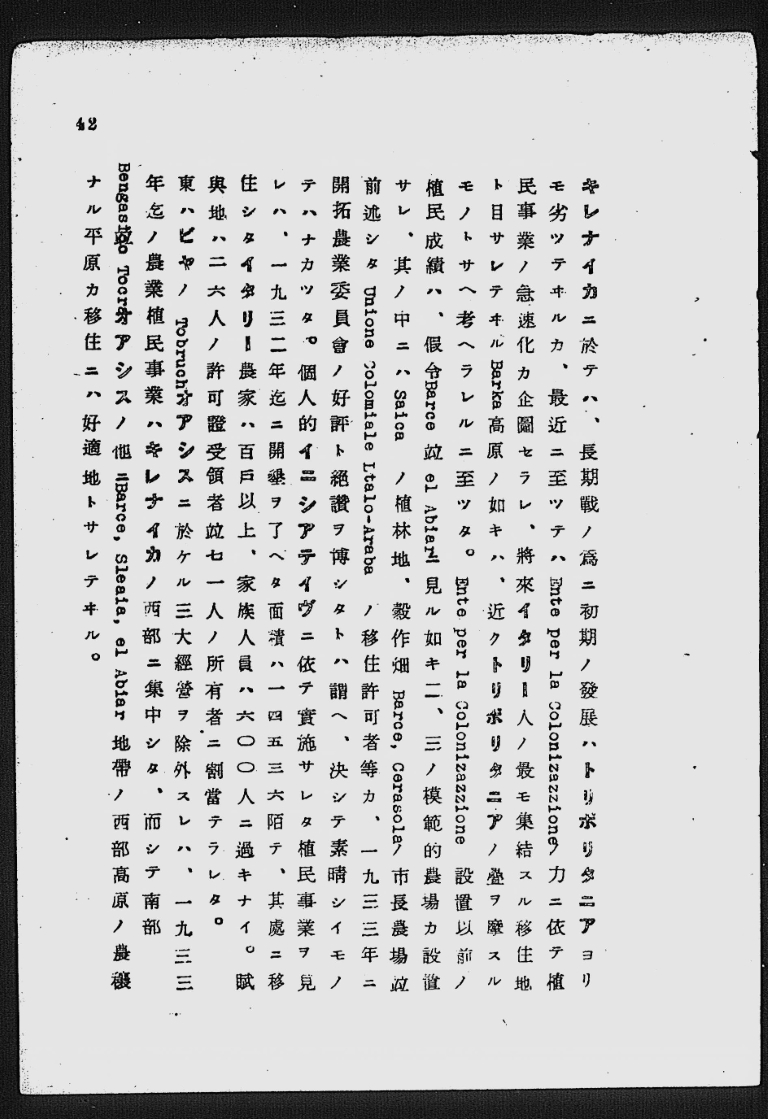 42
キレナイカニ於テハ、長期戰ノ爲ニ初期ノ發展ハトリポリタニアヨリ
モ劣ツテヰルカ、最近ニ至ツテハEnte per la Colonizazzioneノ力ニ依テ植
民事業ノ急速化カ企圖セラレ、將來イタリー人ノ最モ集結スル移住地
ト目サレテヰルBarka高原ノ如キハ、近クトリポリタニアノ壘ヲ摩スル
モノトサヘ考ヘラレルニ至ツタ。Ente per la Colonizazzione 設置以前ノ
植民成績ハ、假令Barce竝el Abiarニ見ル如キ二、三ノ模範的農場カ設置
サレ、其ノ中ニハSaica ノ植林地、穀作畑 Barce, Cerasolaノ市長農場竝
前述シタUnione Colomiale Ltalo-Araba ノ移住許可者等カ、一九三三年ニ
開拓農業委員會ノ好評ト絕讚ヲ博シタトハ謂ヘ、決シテ素晴シイモノ
テハナカツタ。個人的イニシアテイヴニ依テ實施サレタ植民事業ヲ見
レハ、一九三二年迄ニ開墾ヲ了ヘタ面積ハ一四五三六陌テ、其處ニ移
住シタイタリー農家ハ百戶以上、家族人員ハ六〇〇人ニ過キナイ。賦
與地ハ二六人ノ許可證受領者竝七一人ノ所有者ニ割當テラレタ。
東ハビヤノTobruchオアシスニ於ケル三大經營ヲ除外スレハ、一九三三
年迄ノ農業植民事業ハキレナイカノ西部ニ集中シタ、而シテ南部
Bengasi竝Tocraオアシスノ他ニBarce, Sleaia, el Abiar 地帶ノ西部高原ノ農穰
ナル平原カ移住ニハ好適地トサレテヰル。